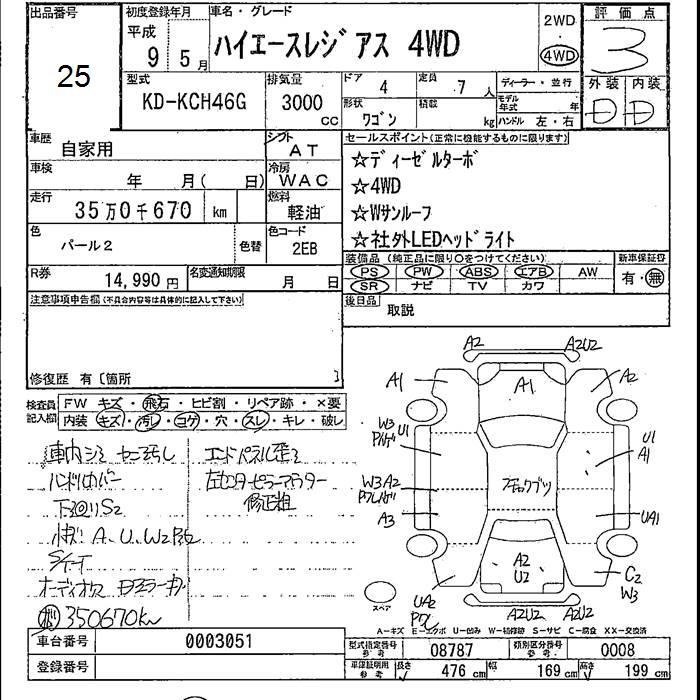 出品番号
25
初度登録年月
平成
9 5月
車名・グレード
ハイエースレジアス 4WD
2WD
4WD
評価点
3
外装 内装
D D
型式
KD-KCH46G
排気量
3000
CC
ドア 4
定員 7人
形状 ワゴン
積載 kg
ディーラー・並行
モデル年式 年
ハンドル 左・右
車歴
自家用
シフト
AT
車検
年 月( 日)
冷房
WAC
走行
35万0千670 km
燃料
軽油
色
パール2
色替
色コード
2EB
R券
14,990 円
名変通知期限
月 日
セールスポイント(正常に機能するものに限ります)
☆ディーゼルターボ
☆4WD
☆Wサンルーフ
☆社外LEDヘッドライト
装備品(純正品に限り○をつけてください)
PS PW ABS エアB AW
SR ナビ TV カワ
新車保証書
有・無
後日品
取説
注意事項申告欄(不具合内容等は具体的に記入して下さい)
修復歴 有〔箇所 〕
検査員記入欄
FW キズ・飛石・ヒビ割・リペア跡・×要
内装 キズ・汚レ・コゲ・穴・スレ・キレ・破レ
エンドパネル歪ミ
修正粗
350670km
A2
A2U2
A1
A1
A2
W3
U1
U1
A1
W3A2
A3
UA1
A2
U2
C2
W3
UA2
A2U2
A2U2
スペア
A-キズ E-エクボ U-凹み W-補修跡 S-サビ C-腐食 XX-交換済
車台番号
0003051
登録番号
型式指定番号
参考
08787
類別区分番号
参考
0008
車庫証明用
参考
長さ 476 cm
幅 169 cm
高さ 199 cm